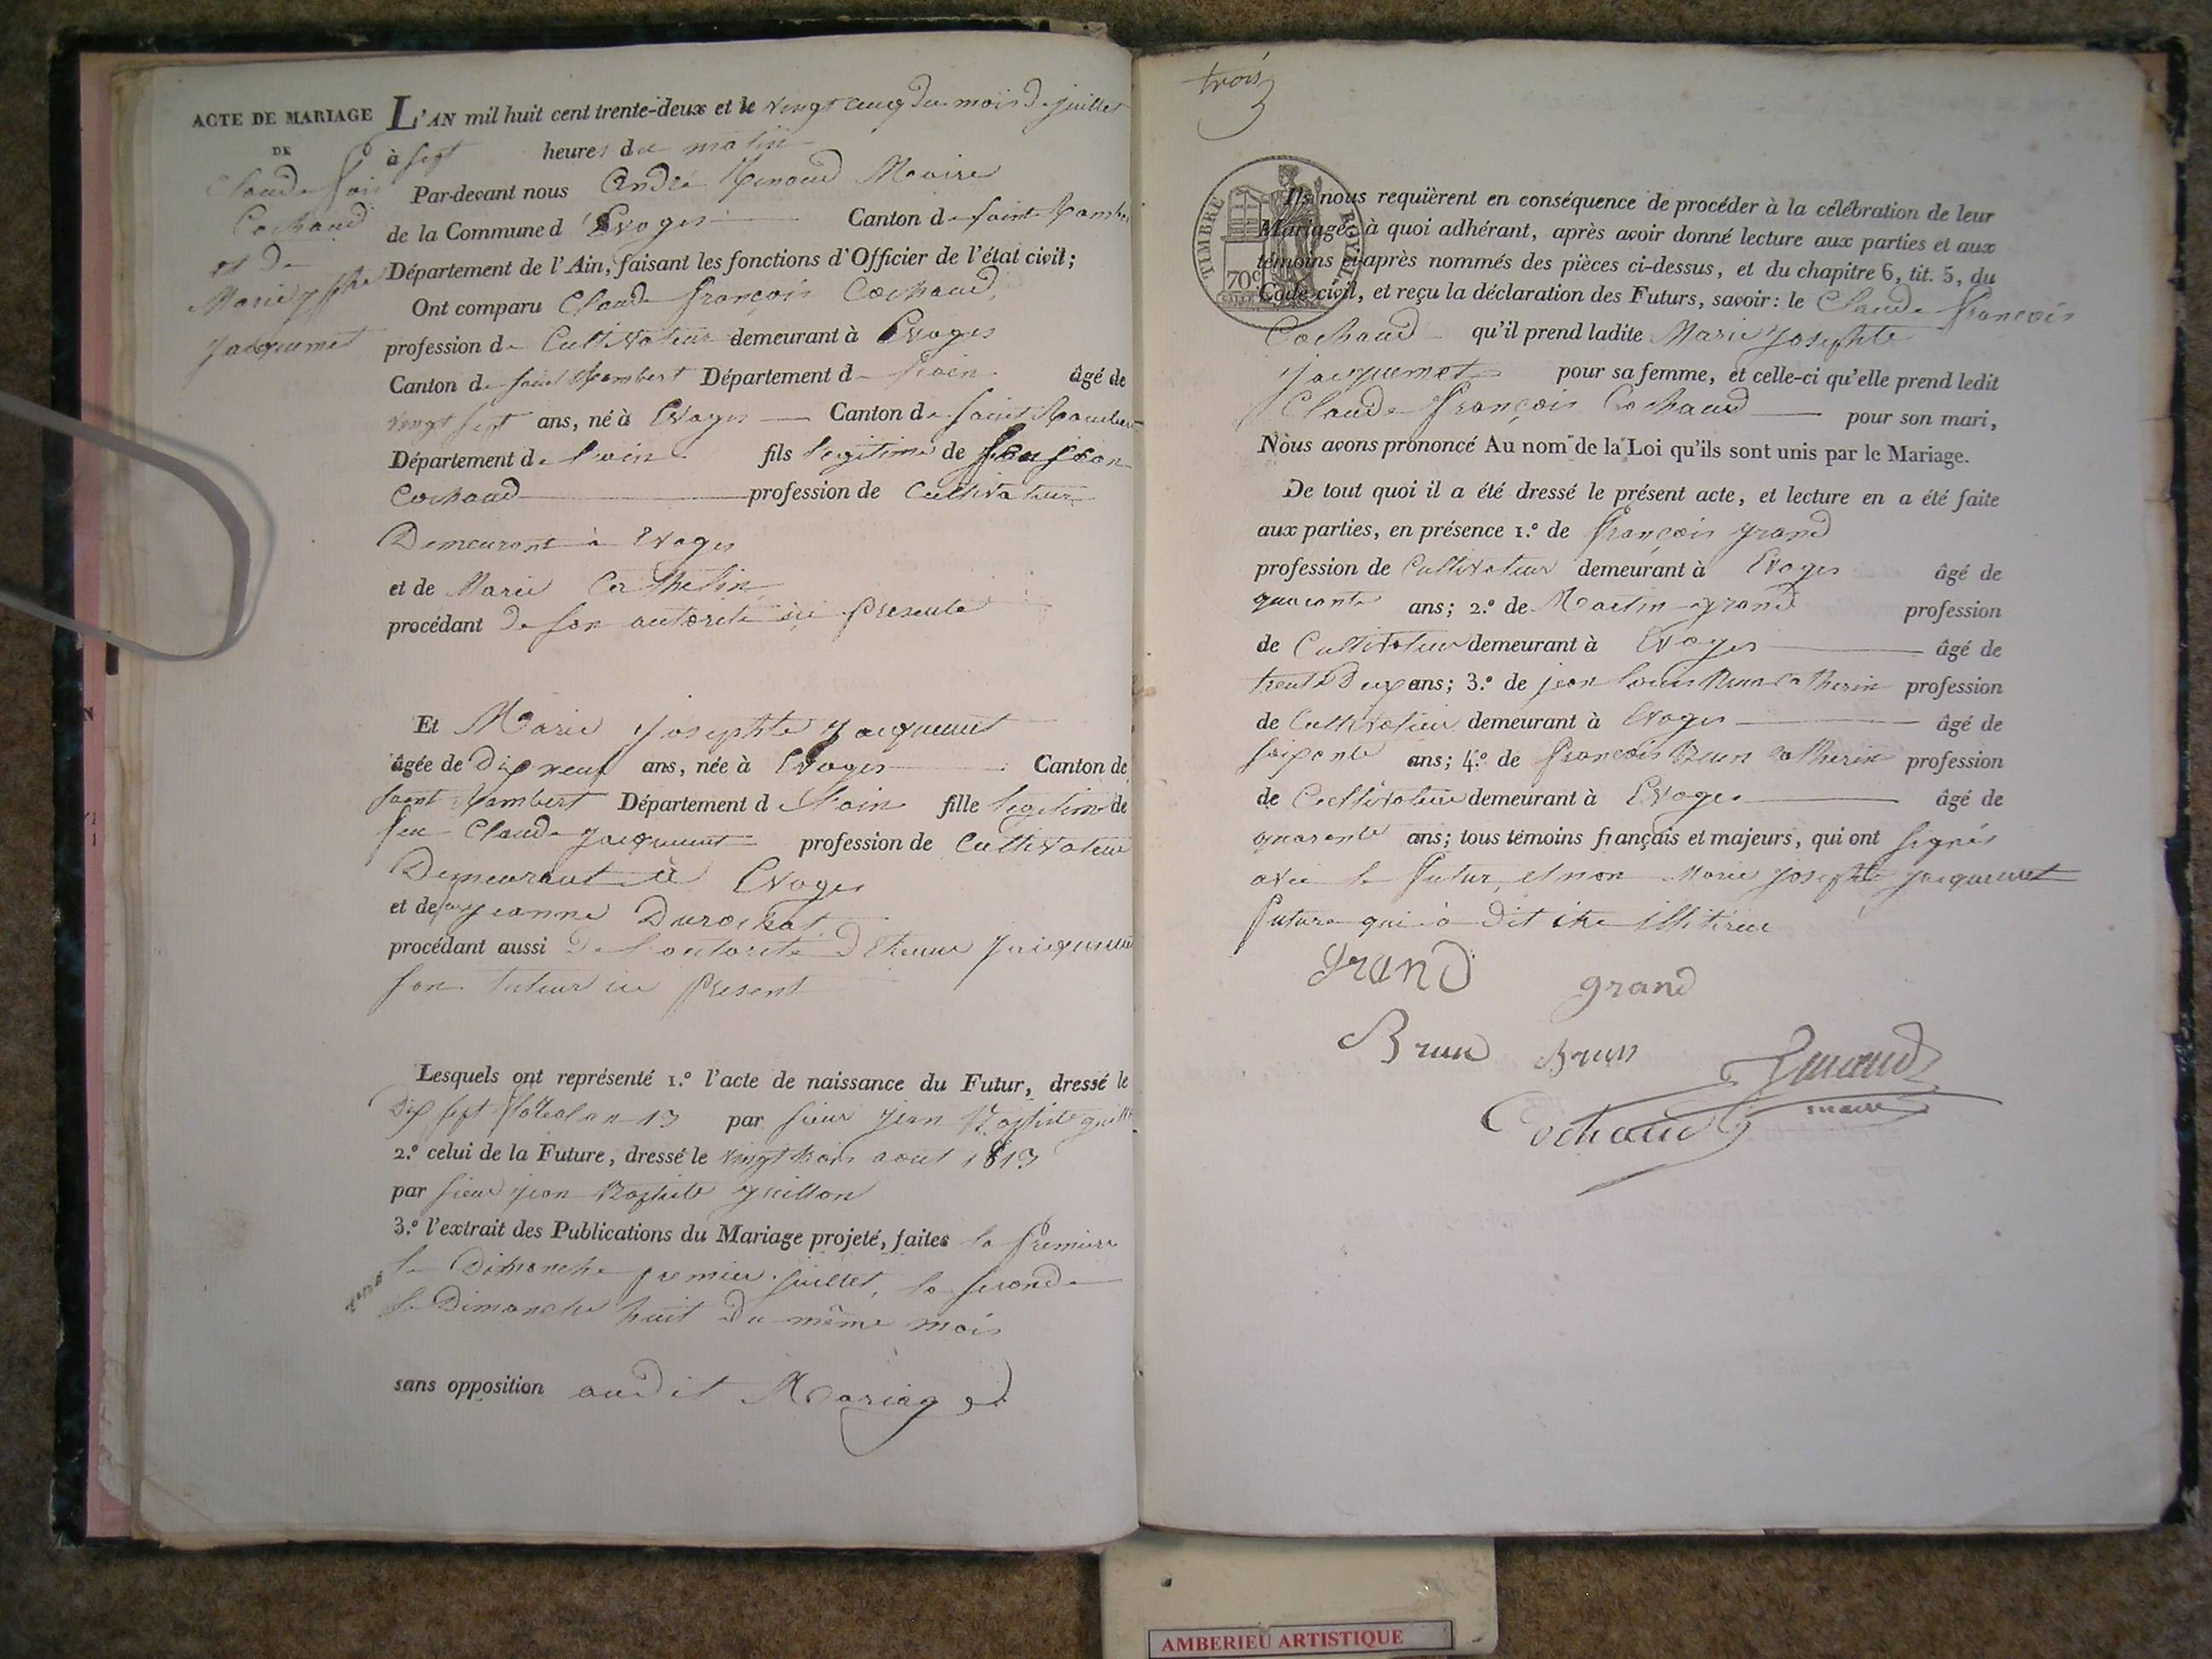 ACTE DE MARIAGE
DE
Claude fois
Cochaud
et de
Marie jsphe
jacquemet
L'AN mil huit cent trente-deux et le vingt cinq du mois de juillet
à sept heures du matin
Par-devant nous André Renaud Maire
de la Commune d'Evoges Canton de saint Rambert
Département de l'Ain, faisant les fonctions d'Officier de l'état civil;
Ont comparu Claude françois Cochaud,
profession de Cultivateur demeurant à Evoges
Canton de saint Rambert Département de l'ain âgé de
vingt sept ans, né à Evoges Canton de saint Rambert
Département de l'ain fils legitime de feu jean
Cochaud profession de Cultivateur
Demeurant à Evoges
et de Marie Catherin
procédant de son autorité ici presente
Et Marie josephte jacquemet
âgée de dix neuf ans, née à Evoges Canton de
saint Rambert Département de l'ain fille legitime de
feu Claude jacquemet profession de Cultivateur
Demeurant à Evoges
et de feu jeanne Durochat
procédant aussi de l'autorité d'Etienne jacquemet
son tuteur ici present
Lesquels ont représenté 1.º l'acte de naissance du Futur, dressé le
Dix sept floreal an 13 par sieur jean Baptiste guillon
2.º celui de la Future, dressé le vingt trois aout 1813
par sieur jean Baptiste guillon
3.º l'extrait des Publications du Mariage projeté, faites la premiere
le Dimanche premier juillet, la seconde
le Dimanche huit du même mois
sans opposition audit Mariage
trois
TIMBRE ROYAL
70c
Ils nous requièrent en conséquence de procéder à la célébration de leur
Mariage; à quoi adhérant, après avoir donné lecture aux parties et aux
témoins ci-après nommés des pièces ci-dessus, et du chapitre 6, tit. 5, du
Code civil, et reçu la déclaration des Futurs, savoir: le Claude françois
Cochaud qu'il prend ladite Marie josephte
jacquemet pour sa femme, et celle-ci qu'elle prend ledit
Claude françois Cochaud pour son mari,
Nous avons prononcé Au nom de la Loi qu'ils sont unis par le Mariage.
De tout quoi il a été dressé le présent acte, et lecture en a été faite
aux parties, en présence 1.º de françois grand
profession de Cultivateur demeurant à Evoges âgé de
quarante ans; 2.º de Martin grand profession
de Cultivateur demeurant à Evoges âgé de
trente Deux ans; 3.º de jean louis Brun Catherin profession
de Cultivateur demeurant à Evoges âgé de
soixante ans; 4.º de françois Brun Catherin profession
de Cultivateur demeurant à Evoges âgé de
quarante ans; tous témoins français et majeurs, qui ont signés
avec le futur, et non Marie josephte jacquemet
future qui a dit etre illitiree
grand grand
Brun Brun
Renaud
maire
Cochaud
AMBERIEU ARTISTIQUE